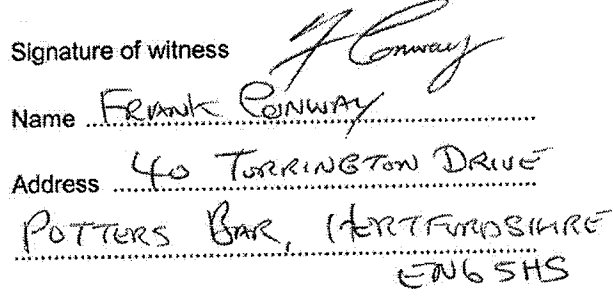 Signature of witness F Conway
Name FRANK CONWAY
Address 40 TORRINGTON DRIVE
POTTERS BAR, HERTFORDSHIRE
EN6 5HS